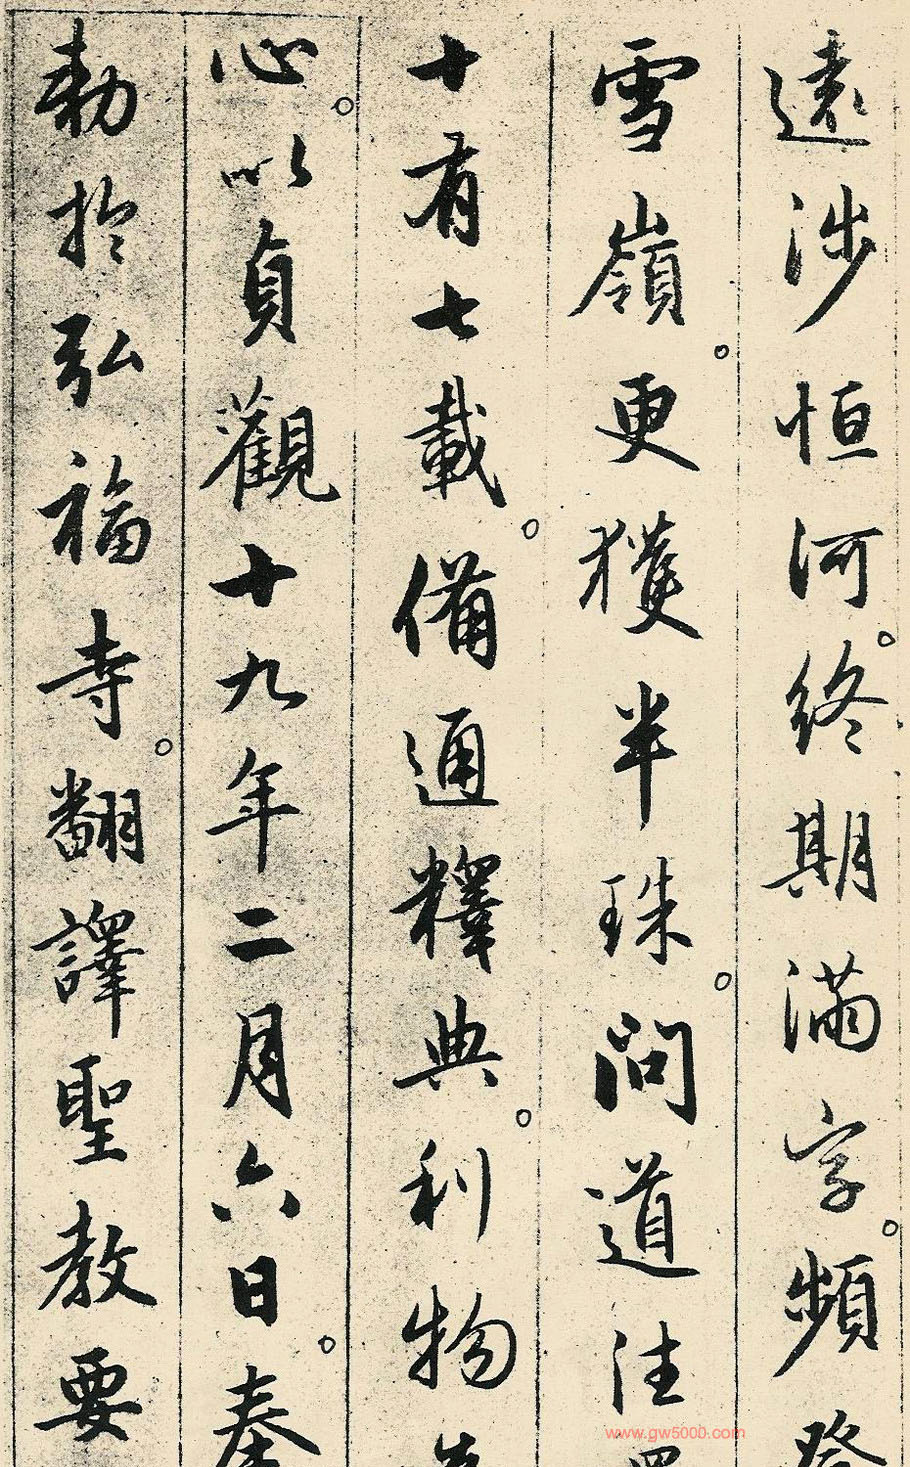 遠涉恒河。終期滿字。頻登
雪嶺。更獲半珠。問道往
十有七載。備通釋典。利物
心。以貞觀十九年二月六日。奉
勅於弘福寺。翻譯聖教要
www.gw5000.com